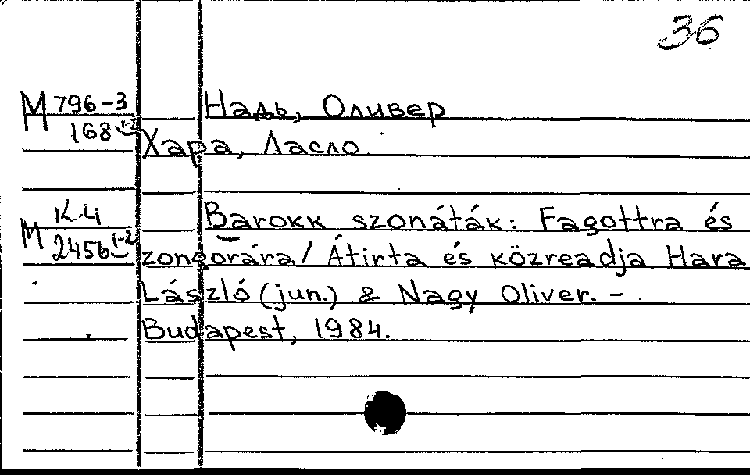 36
M 796-3 Надь, Оливер
168 1-2 Хара, Ласло.
K-4 Barokk szonáták: Fagottra és
M 2456 1-2 zongorára / Átirta és közreadja Hara
László (jun.) & Nagy Oliver. -
Budapest, 1984.